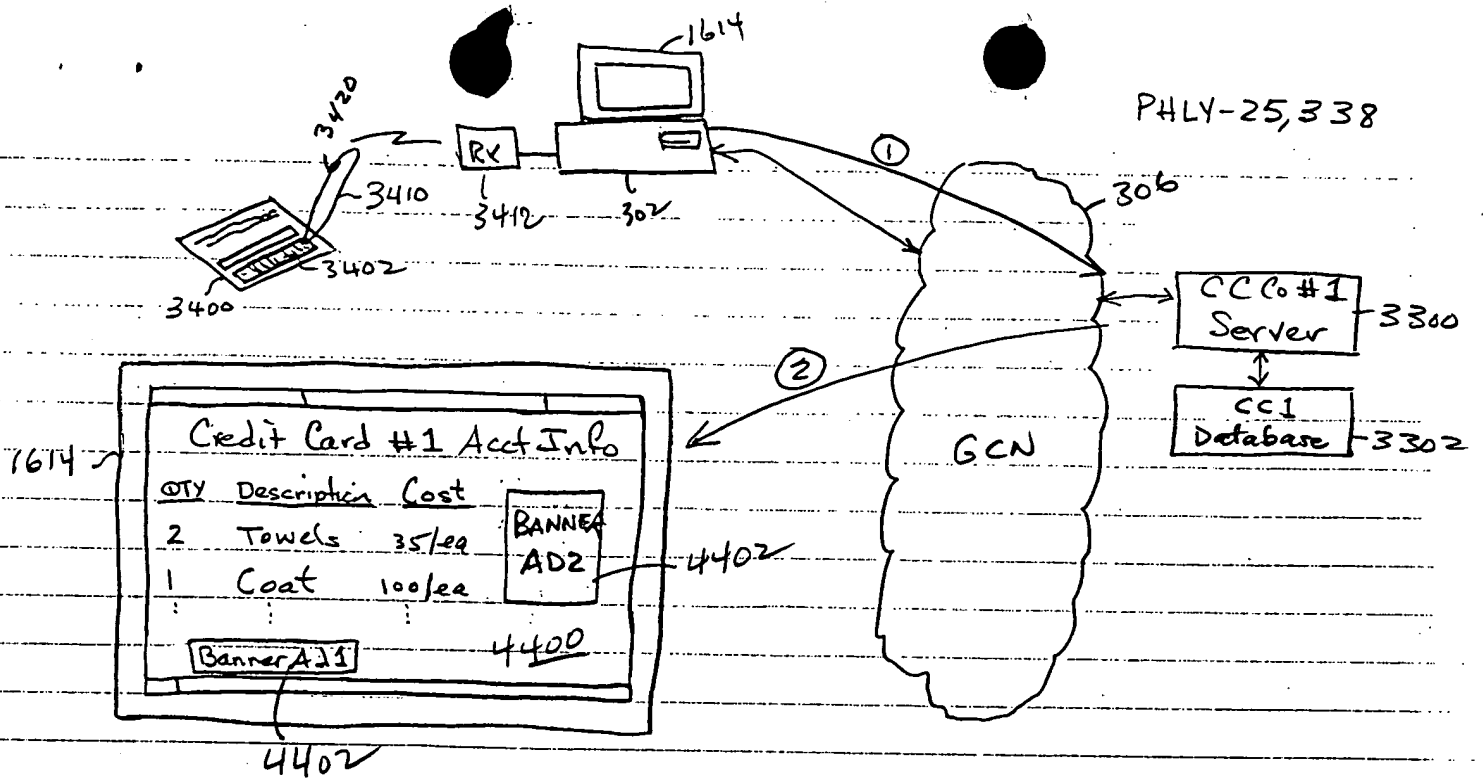 1614
PHLY-25,338
3420
RX
①
306
3410
3412
302
3402
3400
CC Co #1
Server
3300
②
CC1
Database
3302
GCN
1614
Credit Card #1 Acct Info
QTY Description Cost
2 Towels 35/ea
1 Coat 100/ea
BANNER
AD2
4402
Banner Ad1
4400
4402